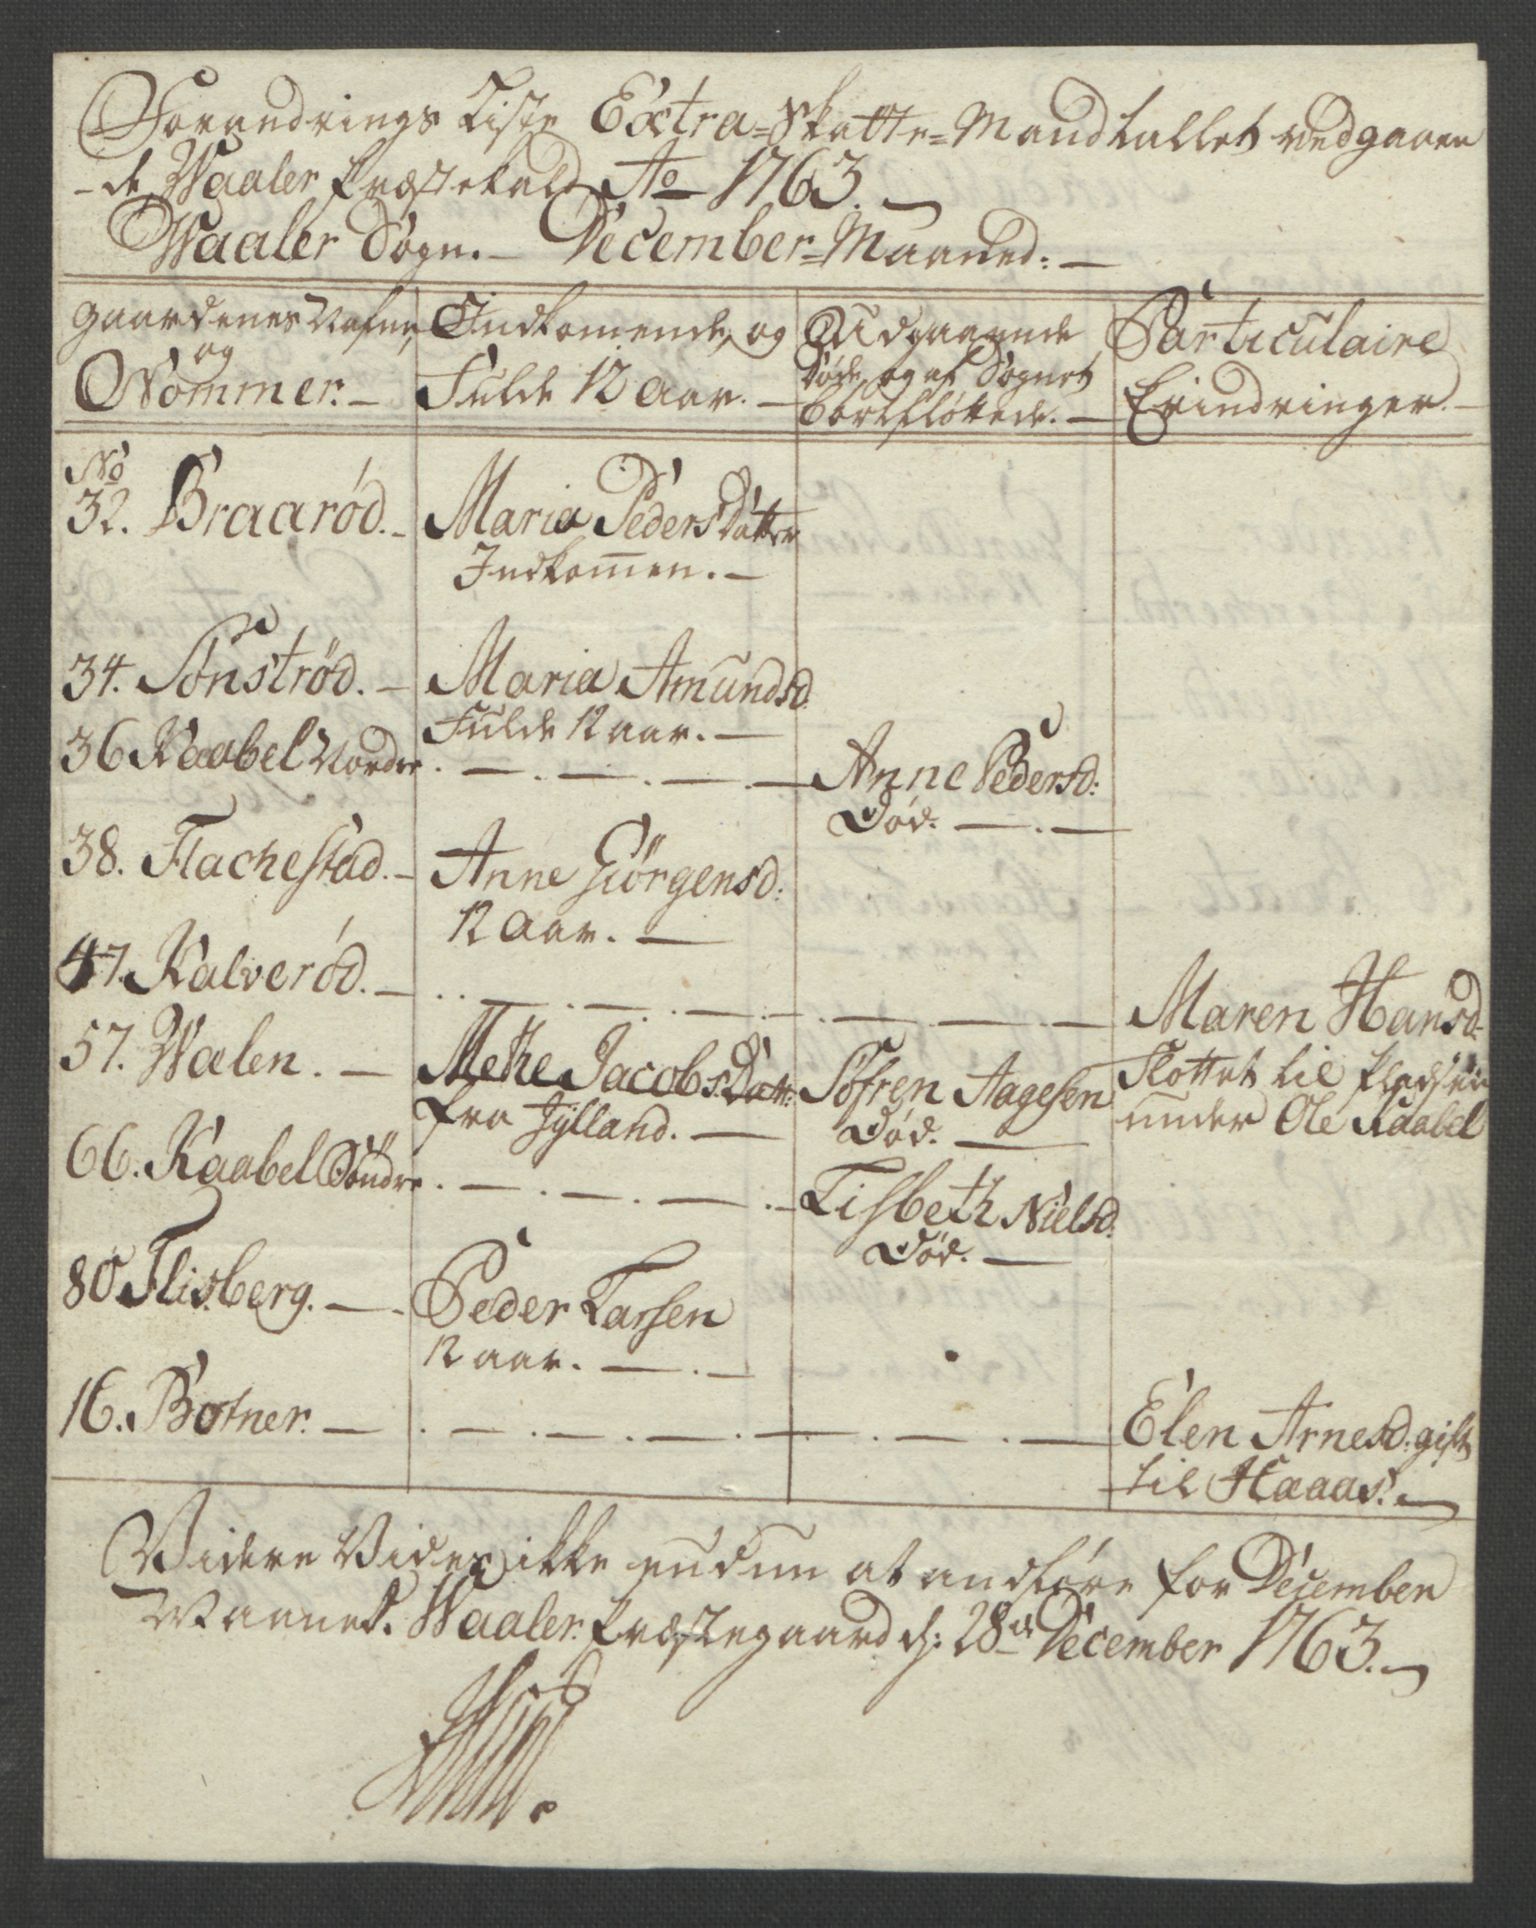 Forandrings Liste Extra=Skatte=Mandtallet vedgaaen
-de Waaler Præstekald Ao 1763.
Waaler Sogn. — December=Maaned: —
Gaardenes Nafne, Indkomende, og Udgaaende Particulaire
og Døde, og af Sognet
Nommer. — Fulde 12 Aar. — bortfløttede. — Erindringer. —
No
32. Braarød. — Maria PedersDatter
Indkommen. —
34. Sonstrød. — Maria Amundsd.
Fulde 12 aar. —
36 Kaabel Nordre . — . — . — . — Anne Pedersd:
Død. — . —
38. Flachestad. — Anne Giörgensd:
12 Aar. —
47. Kalverød. — . . — . — . — . — . — . — Maren Hansd.
57. Walen. — Mette JacobsDatt: Söfren Aagesen Fløttet til Pladsen
fra Jylland. — Død. — under Ole Kaabel
66. Kaabel Söndre . — . — . — . — Lisbeth Nielsd.
Død. —
80 Flisberg. — . Peder Larsen
12 aar. — . —
16. Botner. — . — . — . — . — . — . — Elen Arnesd: gift
til Haaas. —
Videre Vides ikke endnu at andføre for December
Maaned. Waaler Præstegaard d: 28de December 1763. —